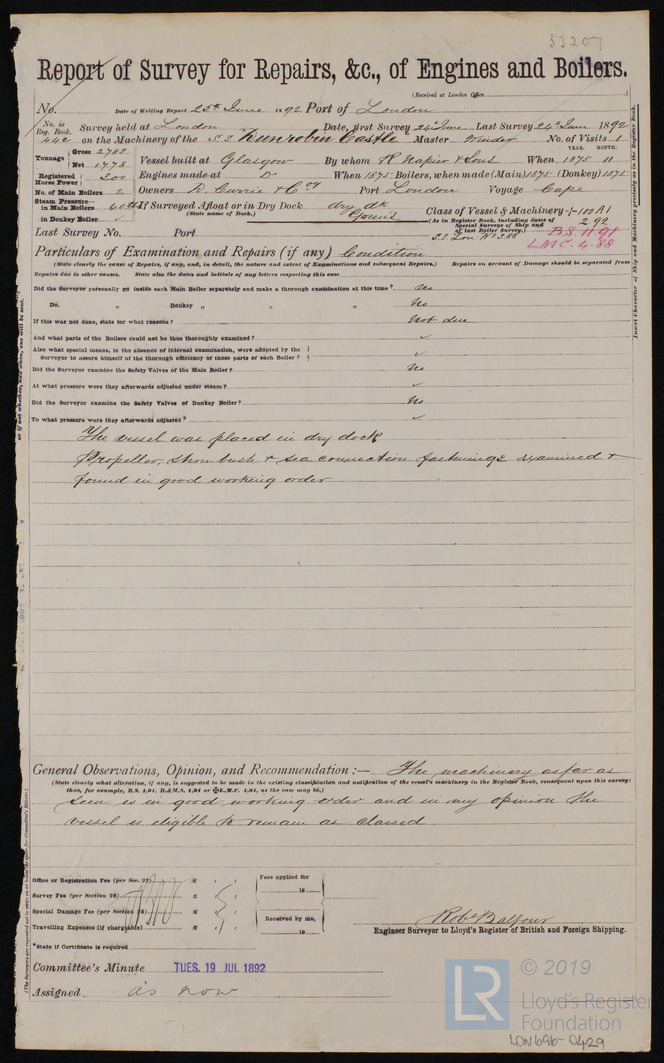 53207
Report of Survey for Repairs, &c., of Engines and Boilers.
(Received at London Office
No. Date of Writing Report 25th June 1892 Port of London
No. in Reg. Book. Survey held at London Date, first Survey 24th June Last Survey 24th June 1892
442 on the Machinery of the S.S. Dunrobin Castle Master Winder No. of Visits 1
Tonnage Gross 2783 Net 1778 Vessel built at Glasgow By whom R Napier & Sons When 1875 YEAR. 11 MONTH.
Registered Horse Power 200 Engines made at Do When 1875 Boilers, when made (Main) 1875 (Donkey) 1875
No. of Main Boilers 2 Owners D. Currie & Coy Port London Voyage Cape
Steam Pressure in Main Boilers 60 lbs If Surveyed Afloat or in Dry Dock dry dk Class of Vessel & Machinery 100 A1
in Donkey Boiler ✓ (State name of Dock.) (As in Register Book, including dates of Special Surveys of Ship and of last Boiler Survey.) 2 92
S.S. Lon No 3.88 B.S. 11.91
Last Survey No. Port LMC. 4.88
Particulars of Examination and Repairs (if any) Condition
(State clearly the cause of Repairs, if any, and, in detail, the nature and extent of Examinations and subsequent Repairs.) Repairs on account of Damage should be separated from
Repairs due to other causes. State also the dates and initials of any letters respecting this case
Did the Surveyor personally go inside each Main Boiler separately and make a thorough examination at this time? No
Do. " Donkey " " " No
If this was not done, state for what reasons? Not due
And what parts of the Boilers could not be thus thoroughly examined? ✓
Also what special means, in the absence of internal examination, were adopted by the
Surveyor to assure himself of the thorough efficiency of those parts of each Boiler? ✓
Did the Surveyor examine the Safety Valves of the Main Boiler? No
At what pressure were they afterwards adjusted under steam? ✓
Did the Surveyor examine the Safety Valves of Donkey Boiler? No
To what pressure were they afterwards adjusted? ✓
The vessel was placed in dry dock
Propeller, stern bush & sea connection fastenings examined &
found in good working order
General Observations, Opinion, and Recommendation :— The machinery as far as
(State clearly what alteration, if any, is suggested to be made in the existing classification and notification of the vessel's machinery in the Register Book, consequent upon this survey:
thus, for example, B.S. 1,91, B.&M.S. 1,91 or ✠L.M.C. 1,91, as the case may be.)
seen is in good working order and in my opinion the
vessel is eligible to remain as classed.
Office or Registration Fee (per Sec. 27) £ : : Fees applied for
Survey Fee (per Section 28) £ : : 18
Special Damage Fee (per Section 28) £ : : Received by me,
Travelling Expenses (if chargeable) £ : : 18
Robt Balfour
Engineer Surveyor to Lloyd's Register of British and Foreign Shipping.
*State if Certificate is required
Committee's Minute TUES. 19 JUL 1892
Assigned as now
Insert Character of Ship and Machinery precisely as in the Register Book.
LR © 2019
Lloyd's Register
Foundation
LON696-0429